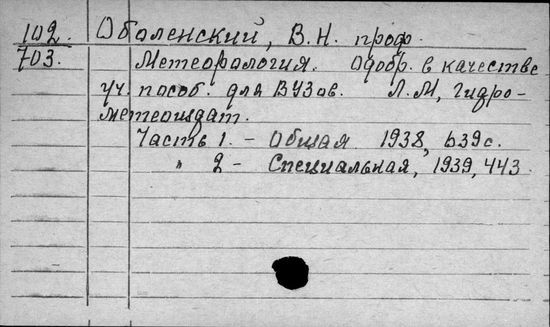 102. Оболенский, В.Н. проф.
703. Метеорология. Одобр. в качестве
уч. пособ. для ВУЗов. Л.М, Гидро-
метеоиздат.
Часть 1. - Общая 1938, 639с.
" 2 - Специальная, 1939, 443.